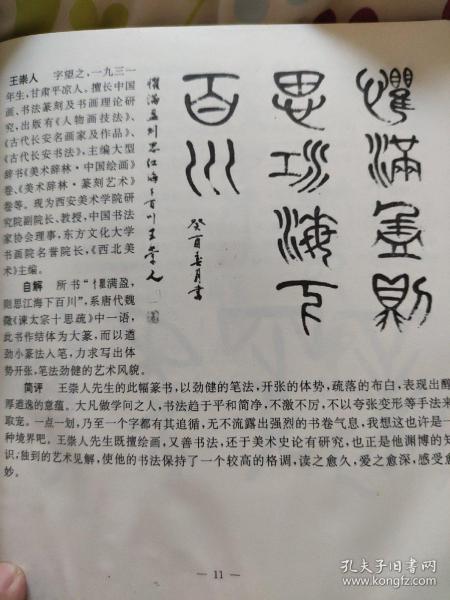 王崇人 字望之,一九三一
年生,甘肃平凉人、擅长中国
画、书法篆刻及书画理论研
究,出版有《人物画技法》、
《古代长安名画家及作品》、
《古代长安书法》,主编大型
辞书《美术辞林·中国绘画》
卷、《美术辞林·篆刻艺术》
卷等。现为西安美术学院研
究院副院长、教授,中国书法
家协会理事,东方文化大学
书画院名誉院长,《西北美
术》主编。
自解 所书“懼满盈,
则思江海下百川”,系唐代魏
徵《谏太宗十思疏》中一语,
此书作结体为大篆,而以遒
劲小篆法入笔,力求写出体
势开张,笔法劲健的艺术风貌。
懼滿盈則
思江海下
百川
懼滿盈則思江海下百川王崇人
癸酉春月書
简评 王崇人先生的此幅篆书,以劲健的笔法,开张的体势,疏落的布白,表现出醇
厚遒逸的意蕴。大凡做学问之人,书法趋于平和简净,不激不厉,不以夸张变形等手法来
取宠。一点一划,乃至一个字都有其追循,无不流露出强烈的书卷气息,我想这也许是一
种境界吧。王崇人先生既擅绘画,又善书法,还于美术史论有研究,也正是他渊博的知
识,独到的艺术见解,使他的书法保持了一个较高的格调,读之愈久,爱之愈深,感受愈
妙。
— 11 —
孔夫子旧书网
www.kongfz.com